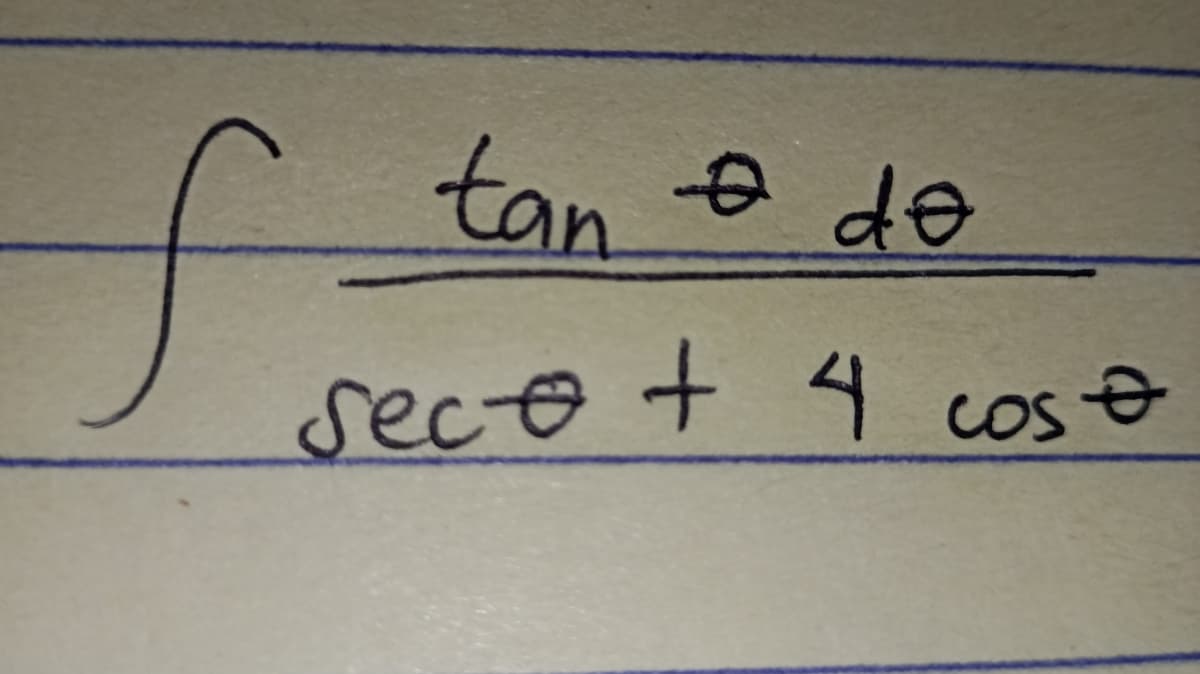 ∫ tan θ dθ
sec θ + 4 cos θ